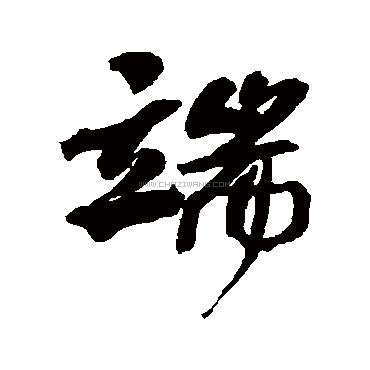 端
WWW.CHAZIWANG.COM